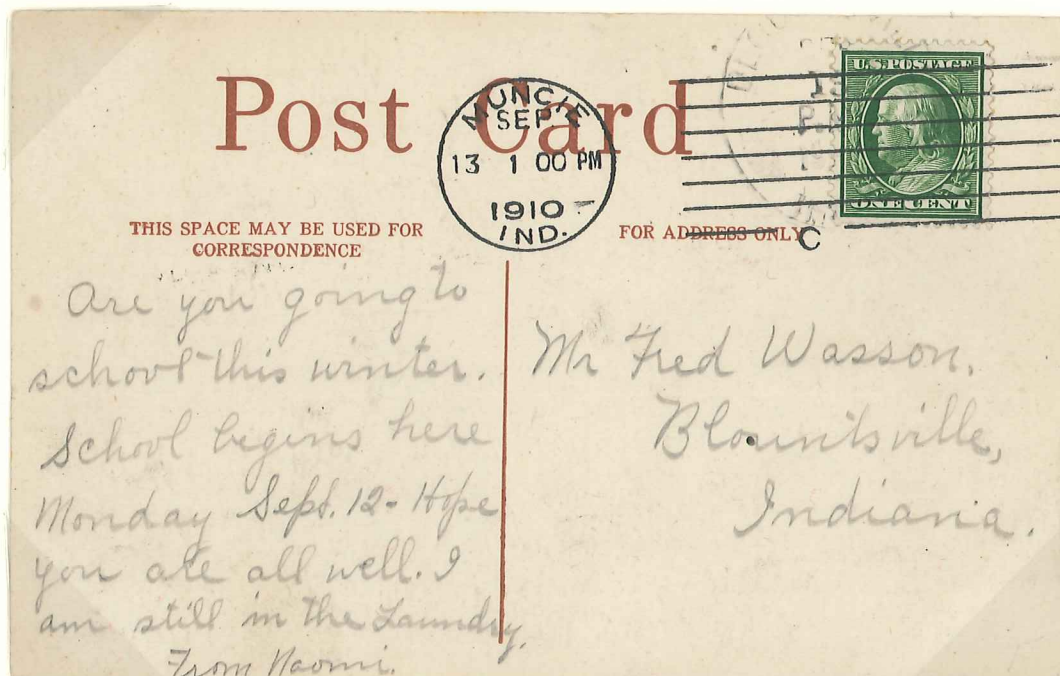 Post Card
MUNCIE
SEP
13 1 00 PM
1910
IND.
U.S. POSTAGE
ONE CENT
C
THIS SPACE MAY BE USED FOR
CORRESPONDENCE
FOR ADDRESS ONLY
Are you going to
school this winter.
School begins here
Monday Sept. 12 - Hope
you are all well. I
am still in the Laundry.
From Naomi.
Mr Fred Wasson.
Blountsville,
Indiana.